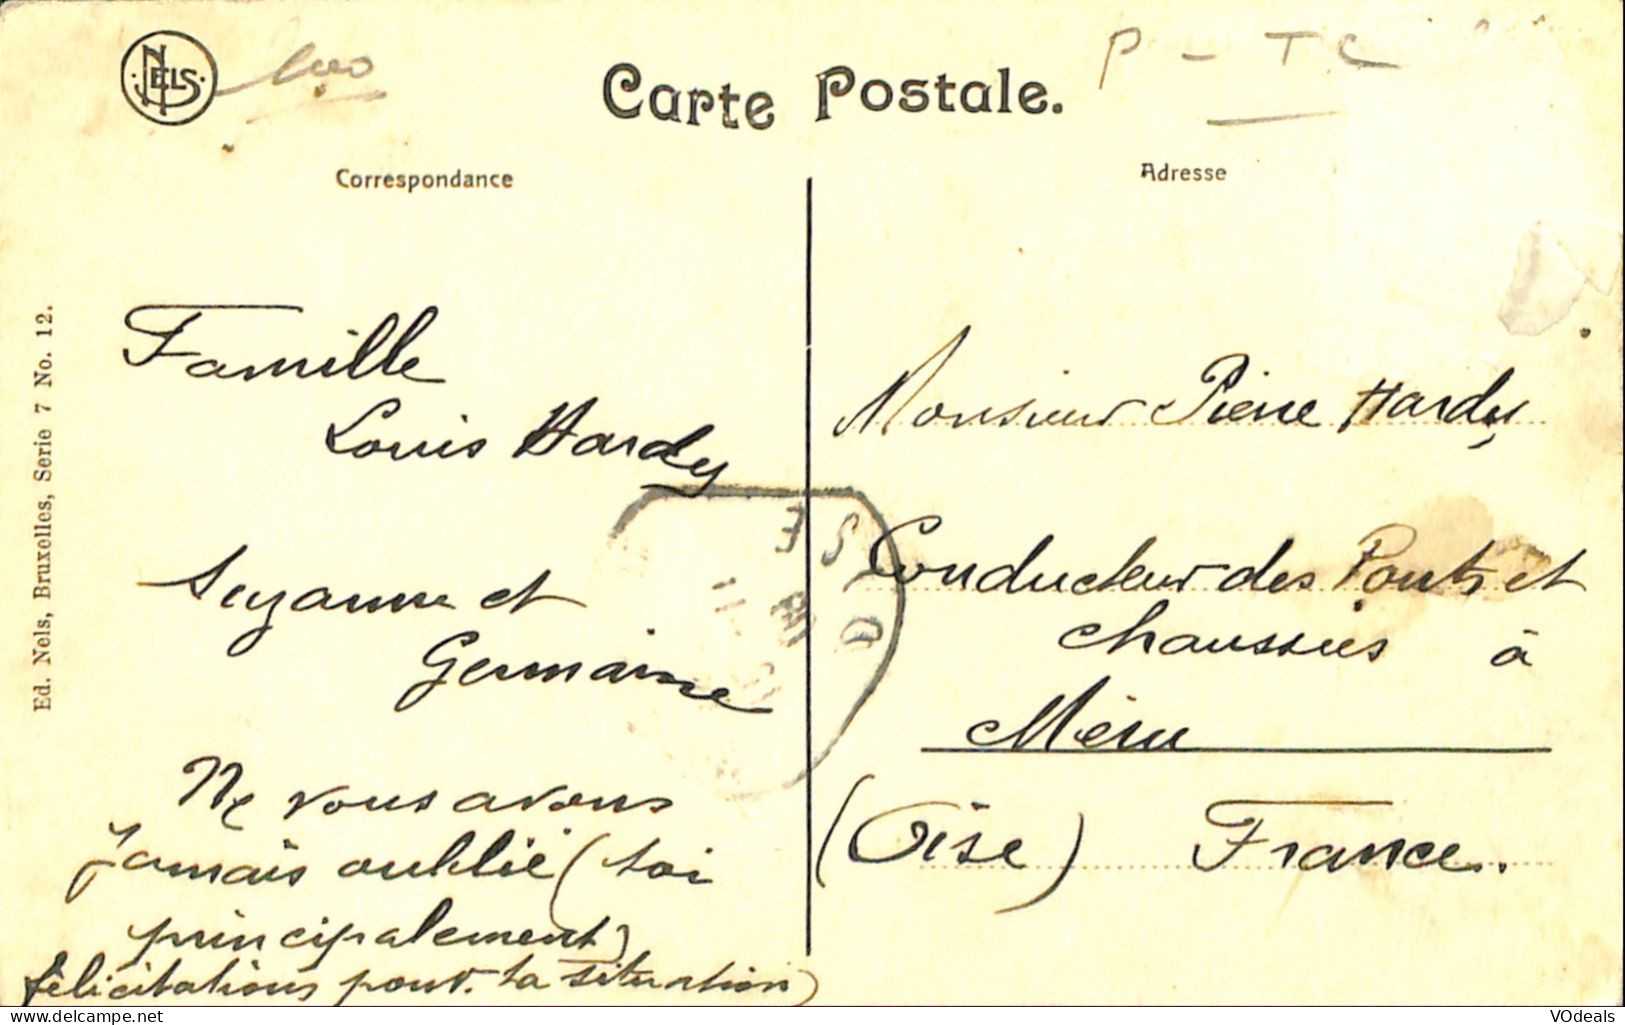 NELS
P - TC
Carte Postale.
Correspondance
Adresse
Ed. Nels, Bruxelles, Serie 7 No. 12.
Famille
Louis Hardy
Suzanne et
Germaine
Ne vous avons
jamais oublié (toi
principalement)
félicitations pour ta situation)
Monsieur Pierre Hardy
Conducteur des Ponts et
chaussées à
Méru
(Oise) France.
VOdeals